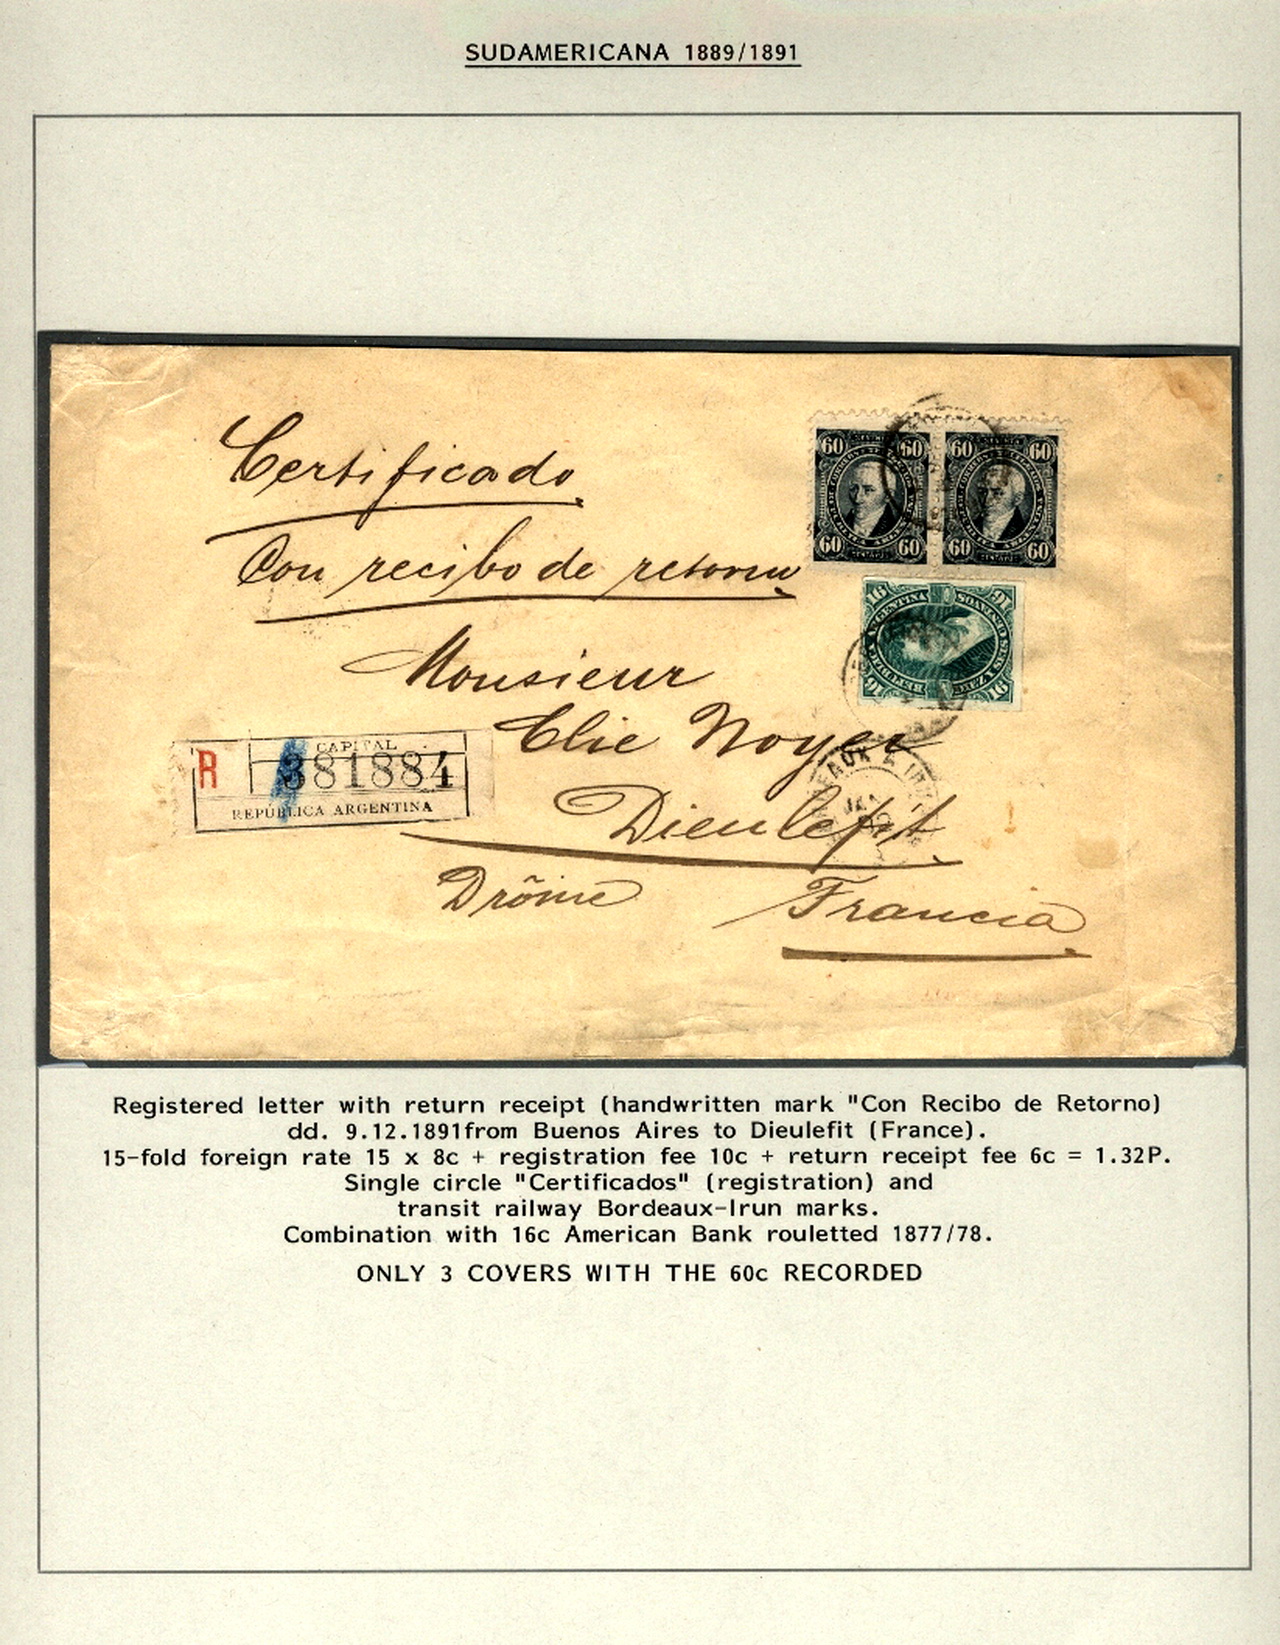 SUDAMERICANA 1889/1891
Certificado
Con recibo de retorno
60 60 60 60
60 60 60 60
16 16
ARGENTINA
16 16
Monsieur
Elie Noyer
Dieulefit
Drôme Francia
R CAPITAL
381884
REPÚBLICA ARGENTINA
Registered letter with return receipt (handwritten mark "Con Recibo de Retorno)
dd. 9.12.1891from Buenos Aires to Dieulefit (France).
15-fold foreign rate 15 x 8c + registration fee 10c + return receipt fee 6c = 1.32P.
Single circle "Certificados" (registration) and
transit railway Bordeaux-Irun marks.
Combination with 16c American Bank rouletted 1877/78.
ONLY 3 COVERS WITH THE 60c RECORDED